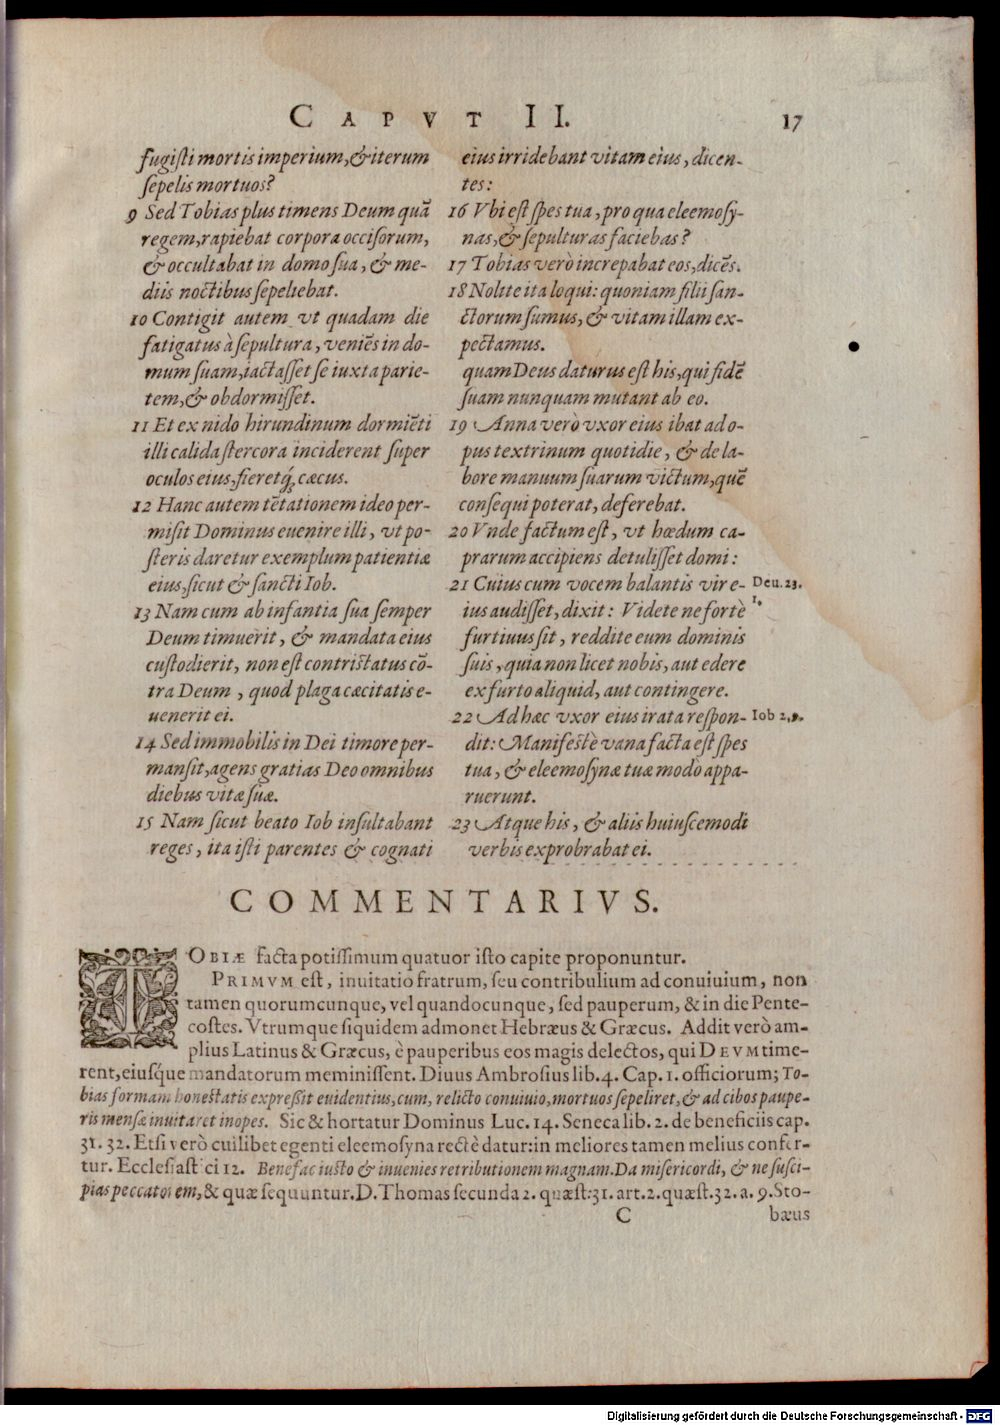 CAPVT II. 17
fugiſti mortis imperium, & iterum
ſepelis mortuos?
9 Sed Tobias plus timens Deum quã
regem, rapiebat corpora occiſorum,
& occultabat in domo ſua, & me-
diis noctibus ſepeliebat.
10 Contigit autem vt quadam die
fatigatus à ſepultura, veniẽs in do-
mum ſuam, iactaſſet ſe iuxta parie-
tem, & obdormiſſet.
11 Et ex nido hirundinum dormiẽti
illi calida ſtercora inciderent ſuper
oculos eius, fieretq́; cæcus.
12 Hanc autem tẽtationem ideo per-
miſit Dominus euenire illi, vt po-
ſteris daretur exemplum patientiæ
eius, ſicut & ſancti Iob.
13 Nam cum ab infantia ſua ſemper
Deum timuerit, & mandata eius
cuſtodierit, non eſt contriſtatus cõ-
tra Deum, quod plaga cæcitatis e-
uenerit ei.
14 Sed immobilis in Dei timore per-
manſit, agens gratias Deo omnibus
diebus vitæ ſuæ.
15 Nam ſicut beato Iob inſultabant
reges, ita iſti parentes & cognati
eius irridebant vitam eius, dicen-
tes:
16 Vbi eſt ſpes tua, pro qua eleemoſy-
nas, & ſepulturas faciebas?
17 Tobias verò increpabat eos, dicẽs.
18 Nolite ita loqui: quoniam filii ſan-
ctorum ſumus, & vitam illam ex-
pectamus.
quam Deus daturus eſt his, qui fidẽ
ſuam nunquam mutant ab eo.
19 Anna verò vxor eius ibat ad o-
pus textrinum quotidie, & de la-
bore manuum ſuarum victum, quẽ
conſequi poterat, deferebat.
20 Vnde factum eſt, vt hœdum ca-
prarum accipiens detuliſſet domi:
21 Cuius cum vocem balantis vir e- Deu. 23.
ius audiſſet, dixit: Videte ne fortè 1.
furtiuus ſit, reddite eum dominis
ſuis, quia non licet nobis, aut edere
ex furto aliquid, aut contingere.
22 Ad hæc vxor eius irata reſpon- Iob 2, 9.
dit: Manifeſtè vana facta eſt ſpes
tua, & eleemoſynæ tuæ modo appa-
ruerunt.
23 Atque his, & aliis huiuſcemodi
verbis exprobrabat ei.
COMMENTARIVS.
TOBIÆ facta potiſſimum quatuor iſto capite proponuntur.
PRIMVM eſt, inuitatio fratrum, ſeu contribulium ad conuiuium, non
tamen quorumcunque, vel quandocunque, ſed pauperum, & in die Pente-
coſtes. Vtrumque ſiquidem admonet Hebræus & Græcus. Addit verò am-
plius Latinus & Græcus, è pauperibus eos magis delectos, qui DEVM time-
rent, eiuſq́ue mandatorum meminiſſent. Diuus Ambroſius lib. 4. Cap. 1. officiorum; To-
bias formam honeſtatis expreſſit euidentius, cum, relicto conuiuio, mortuos ſepeliret, & ad cibos paupe-
ris menſæ inuitaret inopes. Sic & hortatur Dominus Luc. 14. Seneca lib. 2. de beneficiis cap.
31. 32. Etſi verò cuilibet egenti eleemoſyna rectè datur: in meliores tamen melius confer-
tur. Eccleſiaſt ci 12. Benefac iuſto & inuenies retributionem magnam. Da miſericordi, & ne ſuſci-
pias peccatorem, & quæ ſequuntur. D. Thomas ſecunda 2. quæſt. 31. art. 2. quæſt. 32. a. 9. Sto-
C bæus
Digitalisierung gefördert durch die Deutsche Forschungsgemeinschaft - DFG